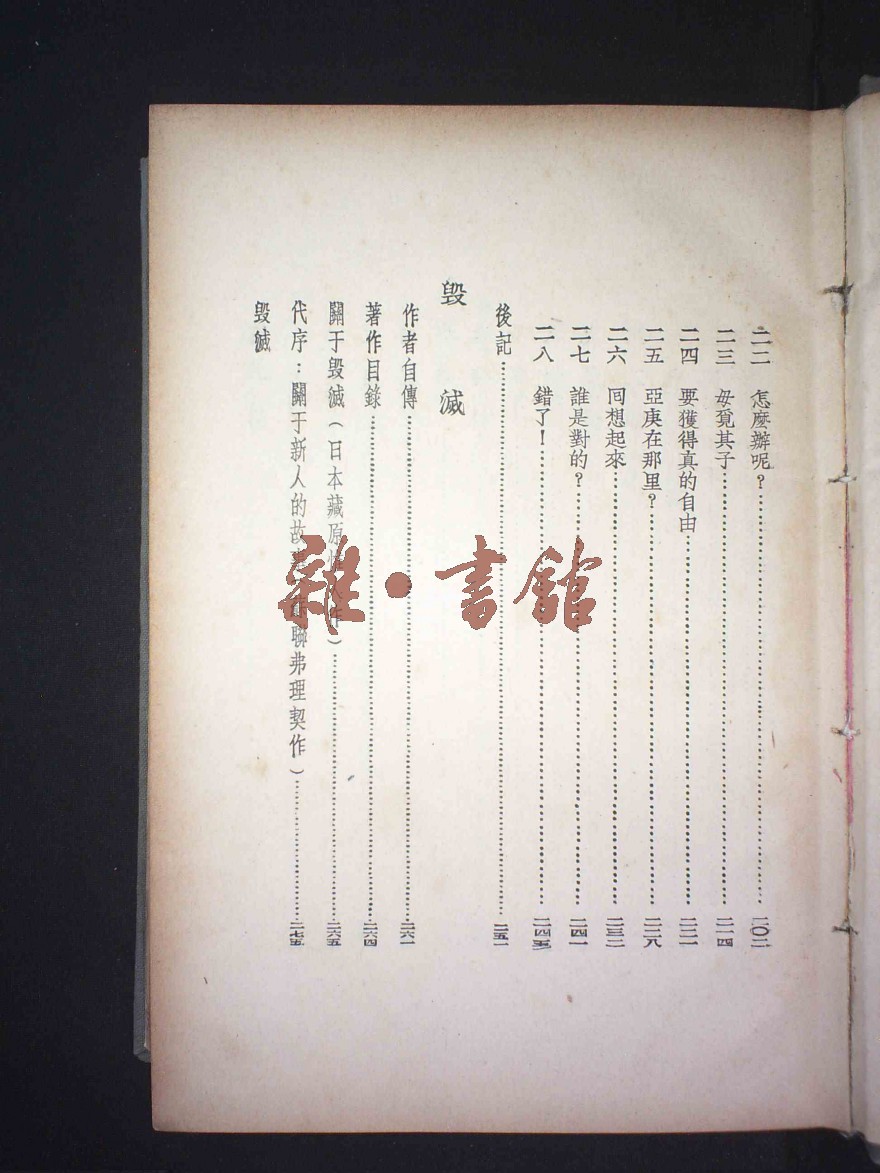 二二 怎麼辦呢？……二〇二
二三 母覓其子……二一四
二四 要獲得真的自由……二二一
二五 亞庚在那里？……二二八
二六 囘想起來……二三二
二七 誰是對的？……二四一
二八 錯了！……二四五
後記……二五一
毀滅
作者自傳……二六一
著作目錄……二六四
關于毀滅（日本藏原 作）……二六五
代序：關于新人的故 聯弗理契作）……二七五
毀滅
雜·書館